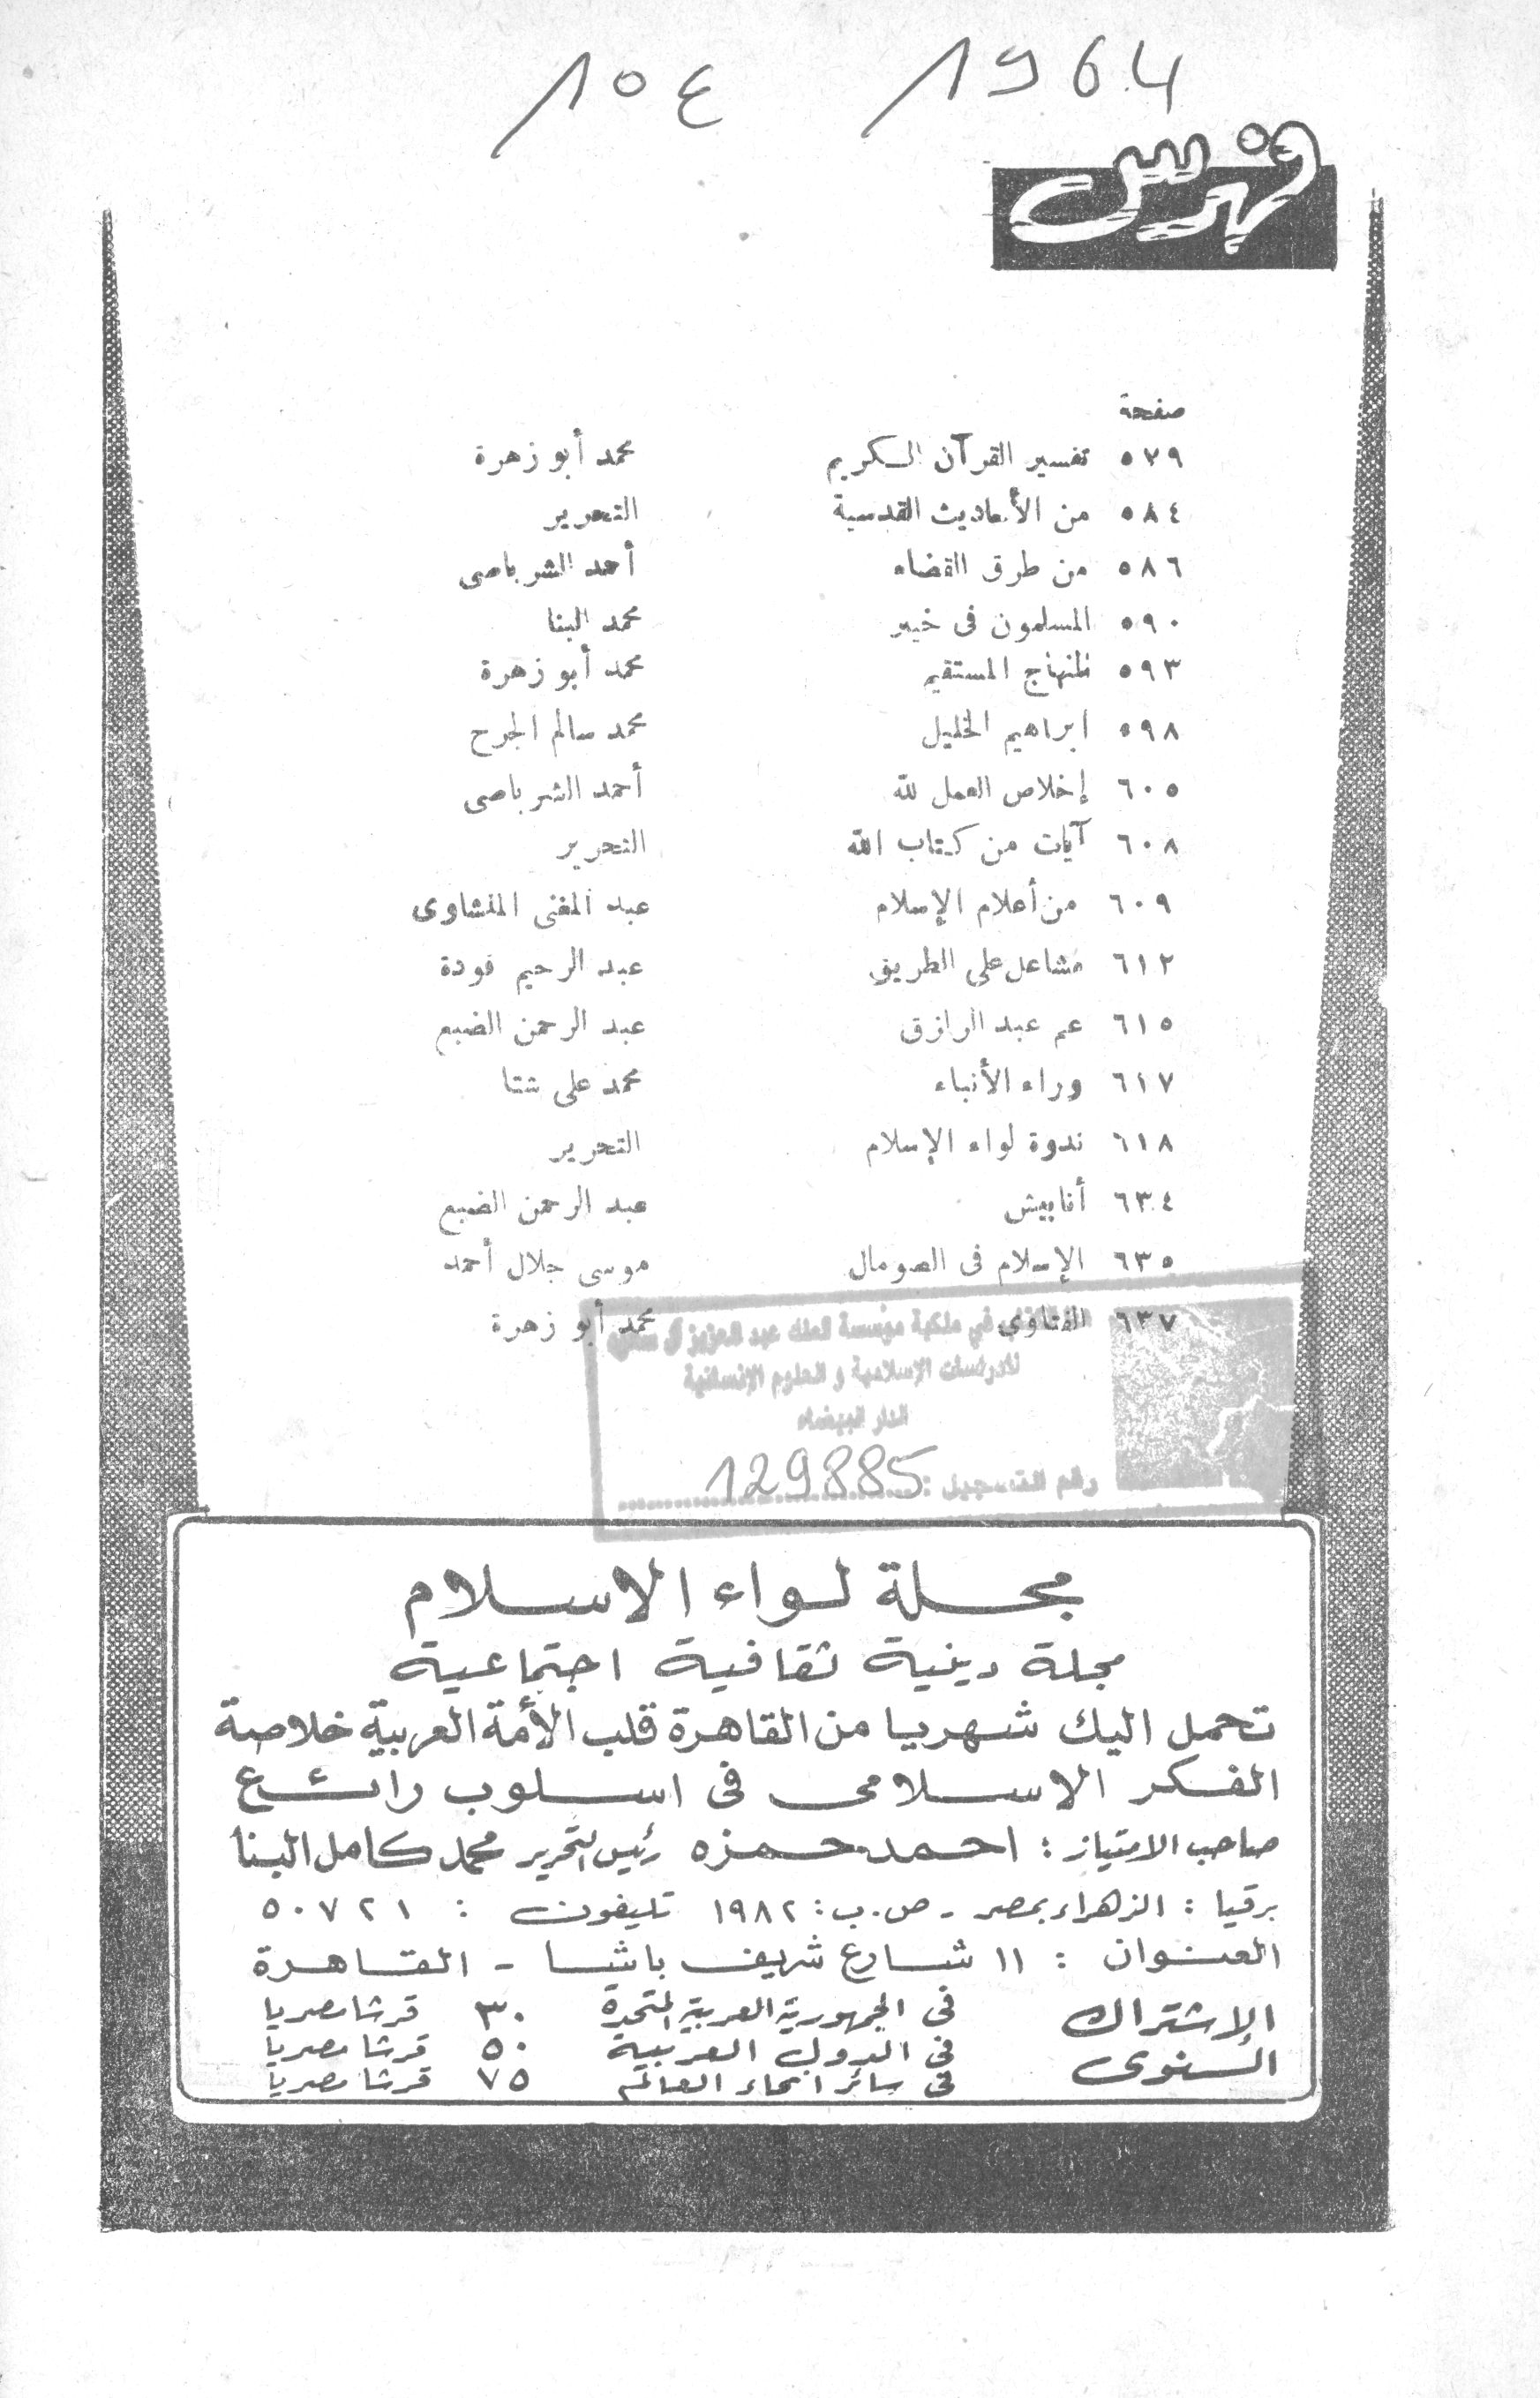 1964 / ١٥٤
فهرس
صفحة
٥٧٩ تفسير القرآن الكريم محمد أبو زهرة
٥٨٤ من الأحاديث القدسية التحرير
٥٨٦ من طرق القضاء أحمد الشرباصى
٥٩٠ المسلمون فى خيبر محمد البنا
٥٩٣ المنهاج المستقيم محمد أبو زهرة
٥٩٨ ابراهيم الخليل محمد سالم الجرح
٦٠٥ إخلاص العمل لله أحمد الشرباصى
٦٠٨ آيات من كتاب الله التحرير
٦٠٩ من أعلام الإسلام عبد المغنى المنشاوى
٦١٢ مشاعل على الطريق عبد الرحيم فودة
٦١٥ عم عبد الرازق عبد الرحمن الضبع
٦١٧ وراء الأنباء محمد على شتا
٦١٨ ندوة لواء الإسلام التحرير
٦٣٤ أنابيش عبد الرحمن الضبع
٦٣٥ الإسلام فى الصومال موسى جلال أحمد
٦٣٧ الفتاوى محمد أبو زهرة
في ملكية مؤسسة الملك عبد العزيز آل سعود
للدراسات الإسلامية و العلوم الإنسانية
الدار البيضاء
رقم التسجيل : 129885
مجلة لواء الاسلام
مجلة دينية ثقافية اجتماعية
تحمل اليك شهريا من القاهرة قلب الأمة العربية خلاصة
الفكر الاسلامى فى اسلوب رائع
صاحب الامتياز : احمد حمزه رئيس التحرير محمد كامل البنا
برقيا : الزهراء بمصر - ص . ب : ١٩٨٢ تليفون : ٥٠٧٢١
العنوان : ١١ شارع شريف باشا - القاهرة
الاشتراك السنوى
فى الجمهورية العربية المتحدة ٣٠ قرشا مصريا
فى الدول العربية ٥٠ قرشا مصريا
فى سائر انحاء العالم ٧٥ قرشا مصريا